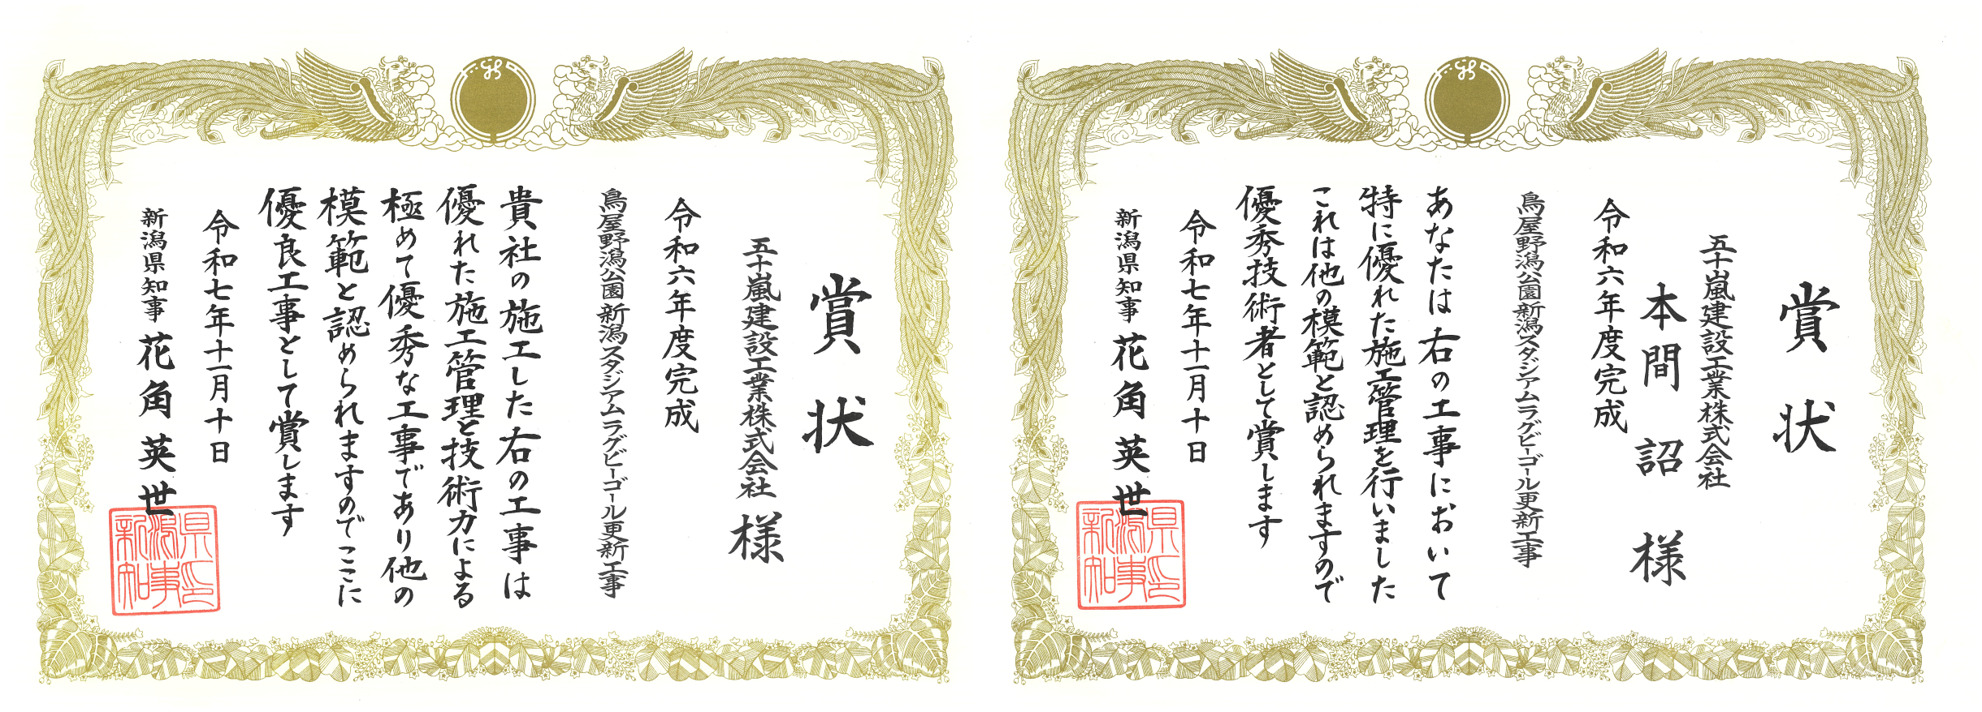 賞状
五十嵐建設工業株式会社 様
令和六年度完成
鳥屋野潟公園新潟スタジアムラグビーゴール更新工事
貴社の施工した右の工事は
優れた施工管理と技術力による
極めて優秀な工事であり他の
模範と認められますのでここに
優良工事として賞します
令和七年十一月十日
新潟県知事 花角英世
新潟県知事印
賞状
五十嵐建設工業株式会社
本間 詔 様
令和六年度完成
鳥屋野潟公園新潟スタジアムラグビーゴール更新工事
あなたは右の工事において
特に優れた施工管理を行いました
これは他の模範と認められますので
優秀技術者として賞します
令和七年十一月十日
新潟県知事 花角英世
新潟県知事印